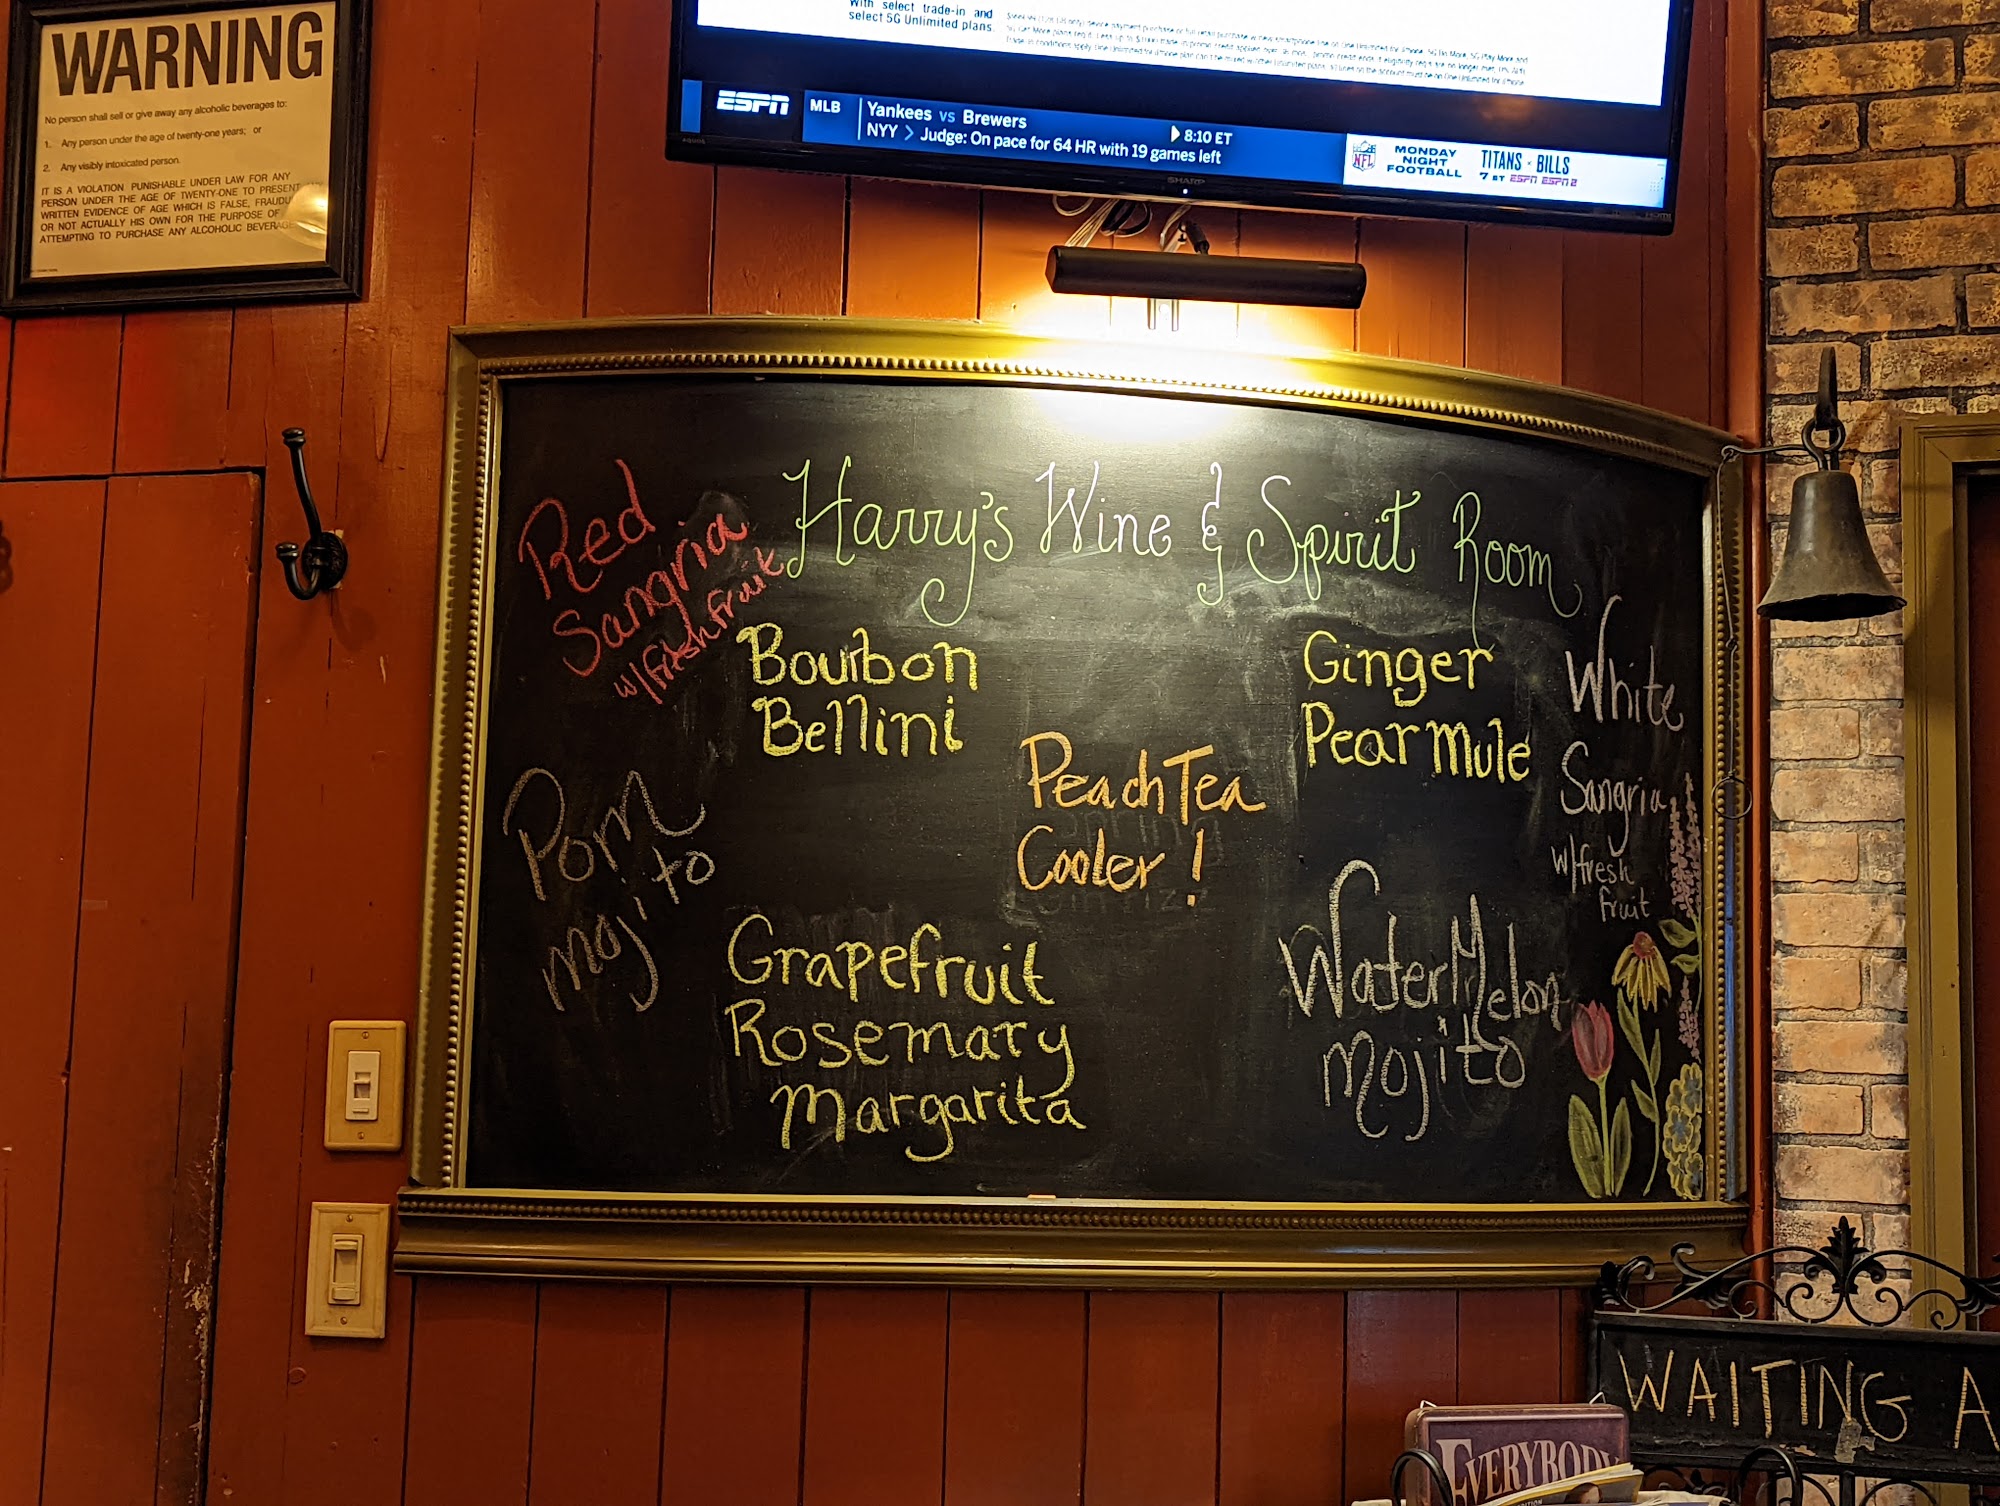 WARNING
No person shall sell or give away any alcoholic beverages to:
1. Any person under the age of twenty-one years; or
2. Any visibly intoxicated person.
IT IS A VIOLATION PUNISHABLE UNDER LAW FOR ANY
PERSON UNDER THE AGE OF TWENTY-ONE TO PRESENT
WRITTEN EVIDENCE OF AGE WHICH IS FALSE, FRAUDU
OR NOT ACTUALLY HIS OWN FOR THE PURPOSE OF
ATTEMPTING TO PURCHASE ANY ALCOHOLIC BEVERAGE
With select trade-in and
select 5G Unlimited plans.
ESPN
MLB
Yankees vs Brewers
8:10 ET
NYY > Judge: On pace for 64 HR with 19 games left
NFL
MONDAY
NIGHT
FOOTBALL
TITANS - BILLS
7 ET ESPN ESPN2
SHARP
Harry's Wine & Spirit Room
Red
Sangria
w/fresh fruit
Bourbon
Bellini
Ginger
Pear Mule
White
Sangria
w/fresh
fruit
Peach Tea
Cooler!
Pom
mojito
Grapefruit
Rosemary
Margarita
WaterMelon
mojito
WAITING A
EVERYBODY